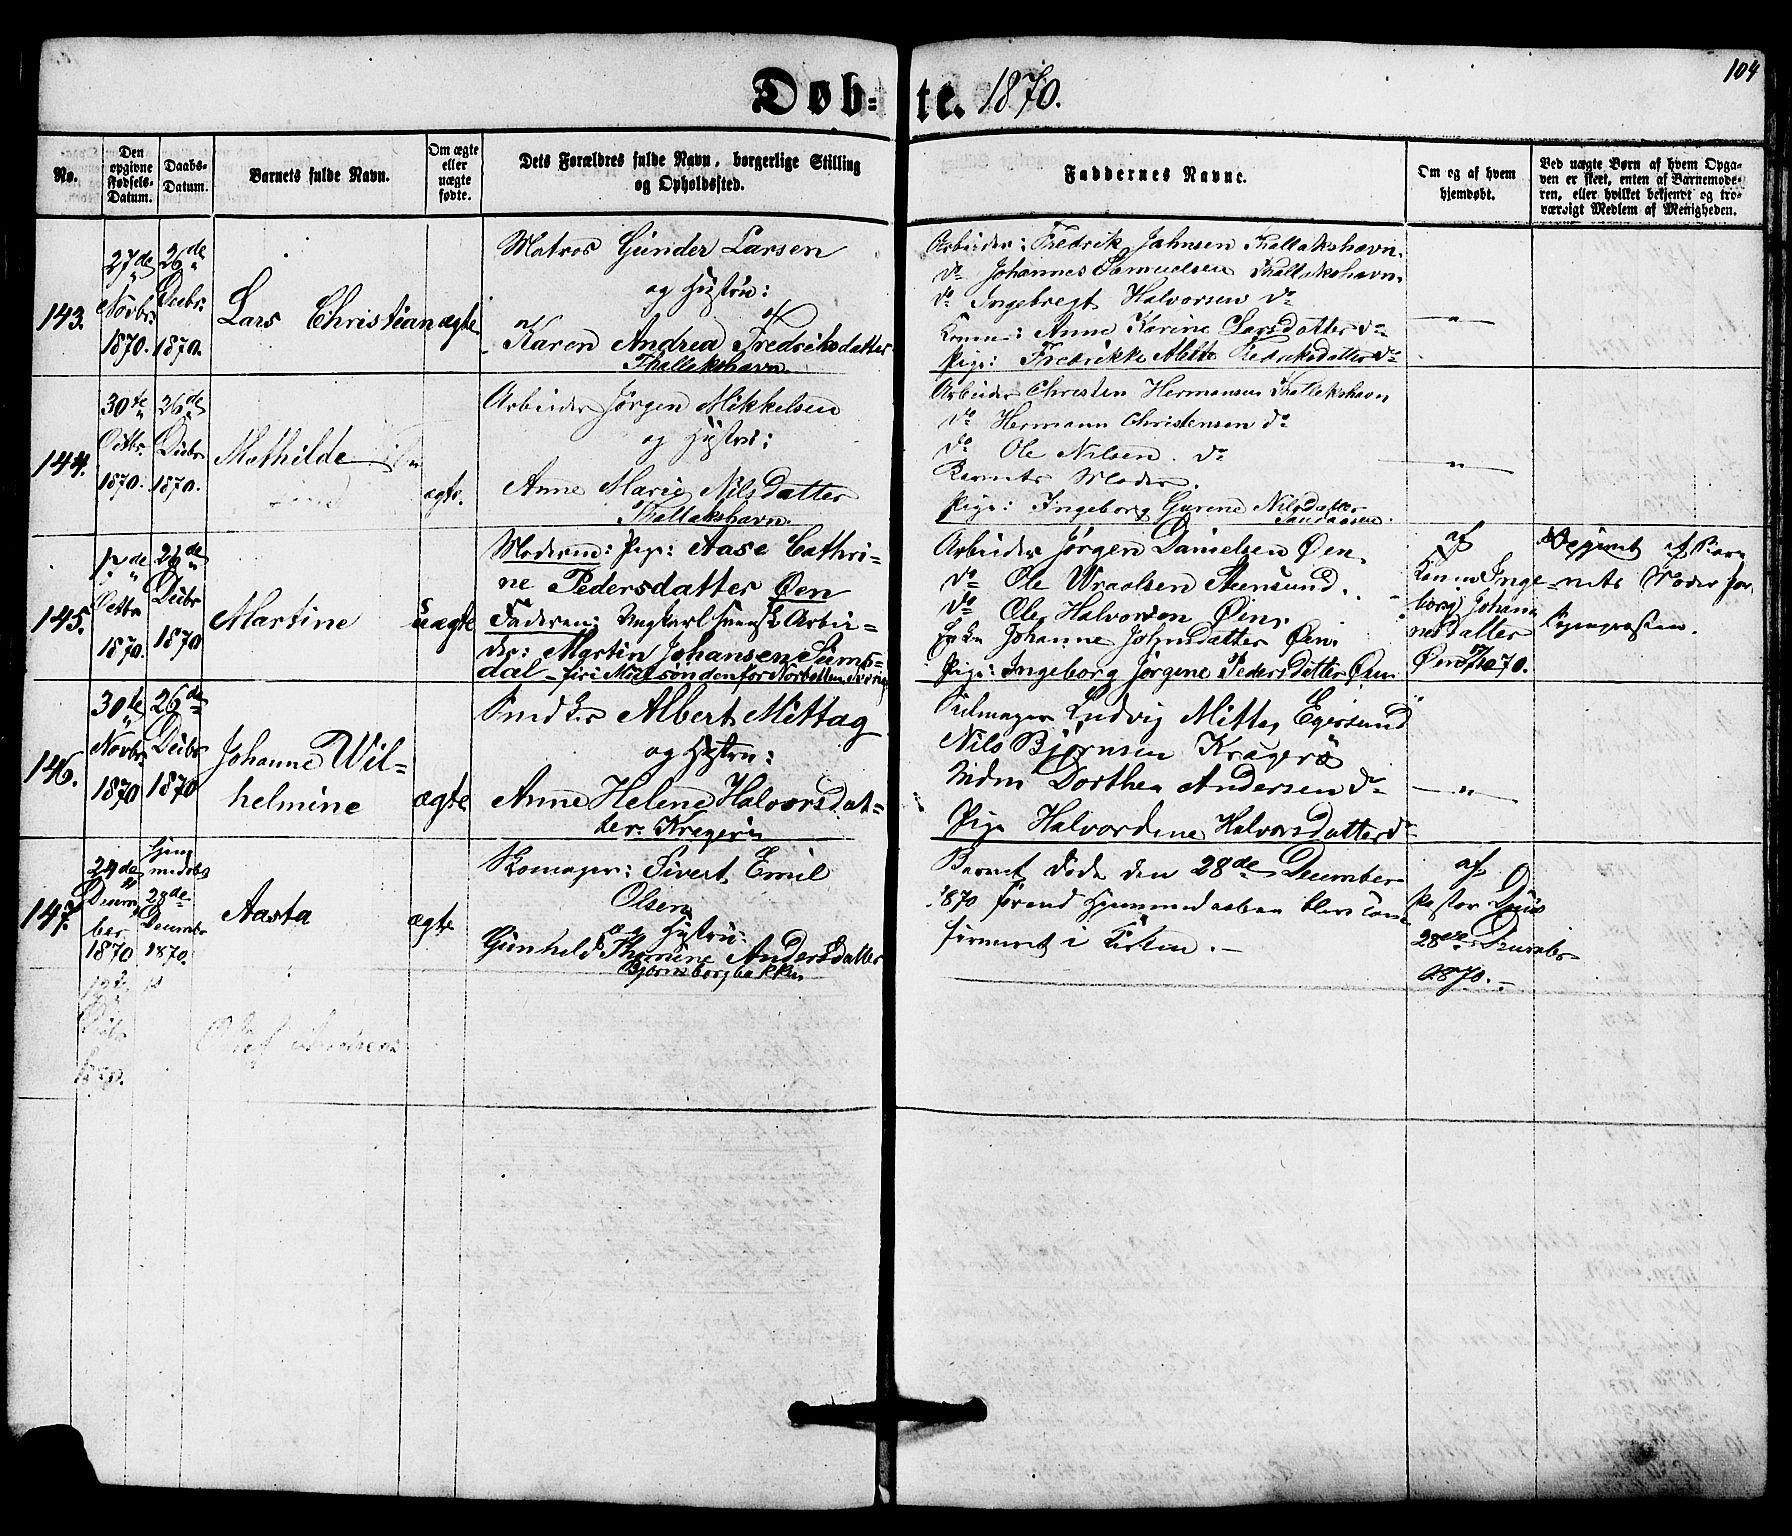 104
Døb-te. 1870.
No.
Den opgivne Fødsels-Datum.
Daabs-Datum.
Barnets fulde Navn.
Om ægte eller uægte fødte.
Dets Forældres fulde Navn, borgerlige Stilling og Opholdssted.
Faddernes Navne.
Om og af hvem hjemdøbt.
Ved uægte Børn af hvem Opga-
ven er skeet, enten af Barnemode-
ren, eller hvilket bekjendt og tro-
værdigt Medlem af Menigheden.
143.
27de Novbr 1870.
26de Decbr. 1870.
Lars Christian
ægte
Matros Gunder Larsen
og Hustru:
Karen Andrea Fredriksdatter
Thallakshavn.
Arbeider: Fredrik Jahnsen Thallakshavn.
do Johannes Samuelsen Thallakshavn.
do Ingebregt Halvorsen do
Konen: Anne Karine Larsdatter do
Pige: Fredrikke Alette Fredriksdatter do
"
144.
30te Octbr. 1870.
26de Decbr 1870.
Mathilde
ægte.
Arbeider Jørgen Mikkelsen
og Hustru:
Anne Marie Nilsdatter
Thallakshavn.
Arbeider Christen Hermansen Thallakshavn
do Hermann Christensen do
do Ole Nilsen. do
Barnets Moder.
Pige: Ingeborg Gurene Nilsdatter
Sandaasen.
"
145.
1870
26de Decbr 1870
Martine
uægte
Moderen: Pige: Aase Cathri-
ne Pedersdatter Øen
Faderen: Ungkarl Svensk Arbei-
der: Martin Johansen
dal
Arbeider Jørgen Danielsen Øen.
do Ole Wraalsen Stensund.
do Ole Halvorsen Øen.
Johanne Johnsdatter Øen.
Pige: Ingeborg Jørgene Pedersdatter Øen
af
Konen Inge-
borg Johan-
nesdatter
Øen 1870.
af Bar-
nets Moder for
Sognepræsten.
146.
30te Novbr 1870
26de Decbr 1870
Johanne Wil-
helmine
ægte
Smed Albert Mittag
og Hustru:
Anne Helene Halvorsdat-
ter. Kragerø
Ludvig Mittag Egersund
Nils Bjørnsen Kragerø
Dorthea Andersen do
Pige Halvordine Halvorsdatter do
"
147.
29de Decem-
ber 1870
Hjemmedøbt
28de December 1870.
Aasta
ægte
Skomager: Sivert Emil
Olsen
og Hustru:
Gunhild Thomine Andersdatter
Bjørnsborgbakken
Barnet døde den 28de December
1870 førend Hjemmedaaben blev con-
firmeret i Kirken.
af
Pastor
28de December
1870.